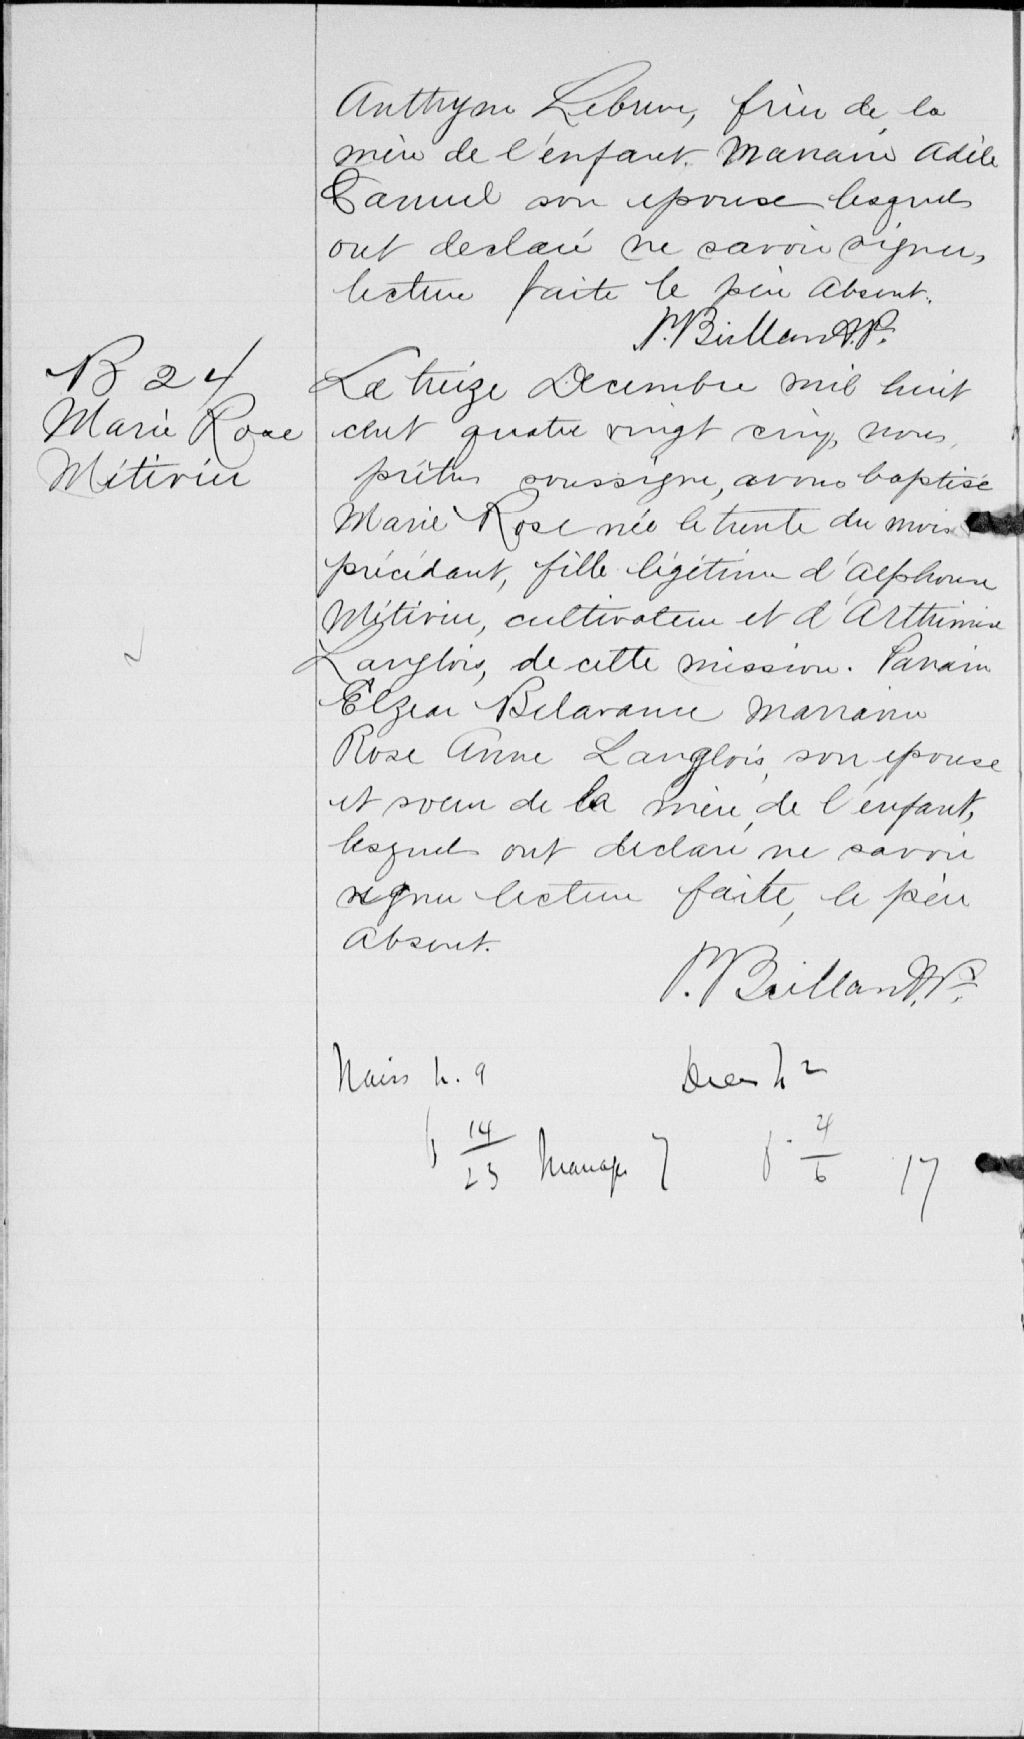 Anthyme Lebrun, frère de la
mère de l'enfant. Marraine Adèle
Canuel son epouse lesquels
ont declaré ne savoir signer,
lecture faite le père Absent.
P. Brillant Ptr.
B 24
Marie Rose
Métivier
Le treize Decembre mil huit
cent quatre vingt cinq, nous,
prêtre soussigné, avons baptisé
Marie Rose née le trente du mois
précédant, fille légitime d'Alphonse
Métivier, cultivateur et d'Arthémise
Langlois, de cette mission. Parrain
Elzear Belavance Marraine
Rose Anne Langlois, son epouse
et soeur de la mère de l'enfant,
lesquels ont declaré ne savoir
signer lecture faite, le père
Absent.
P. Brillant Ptr.
Naiss h. 9 Deces h 2
f 14 f. 4
23 Mariage 7 6 17